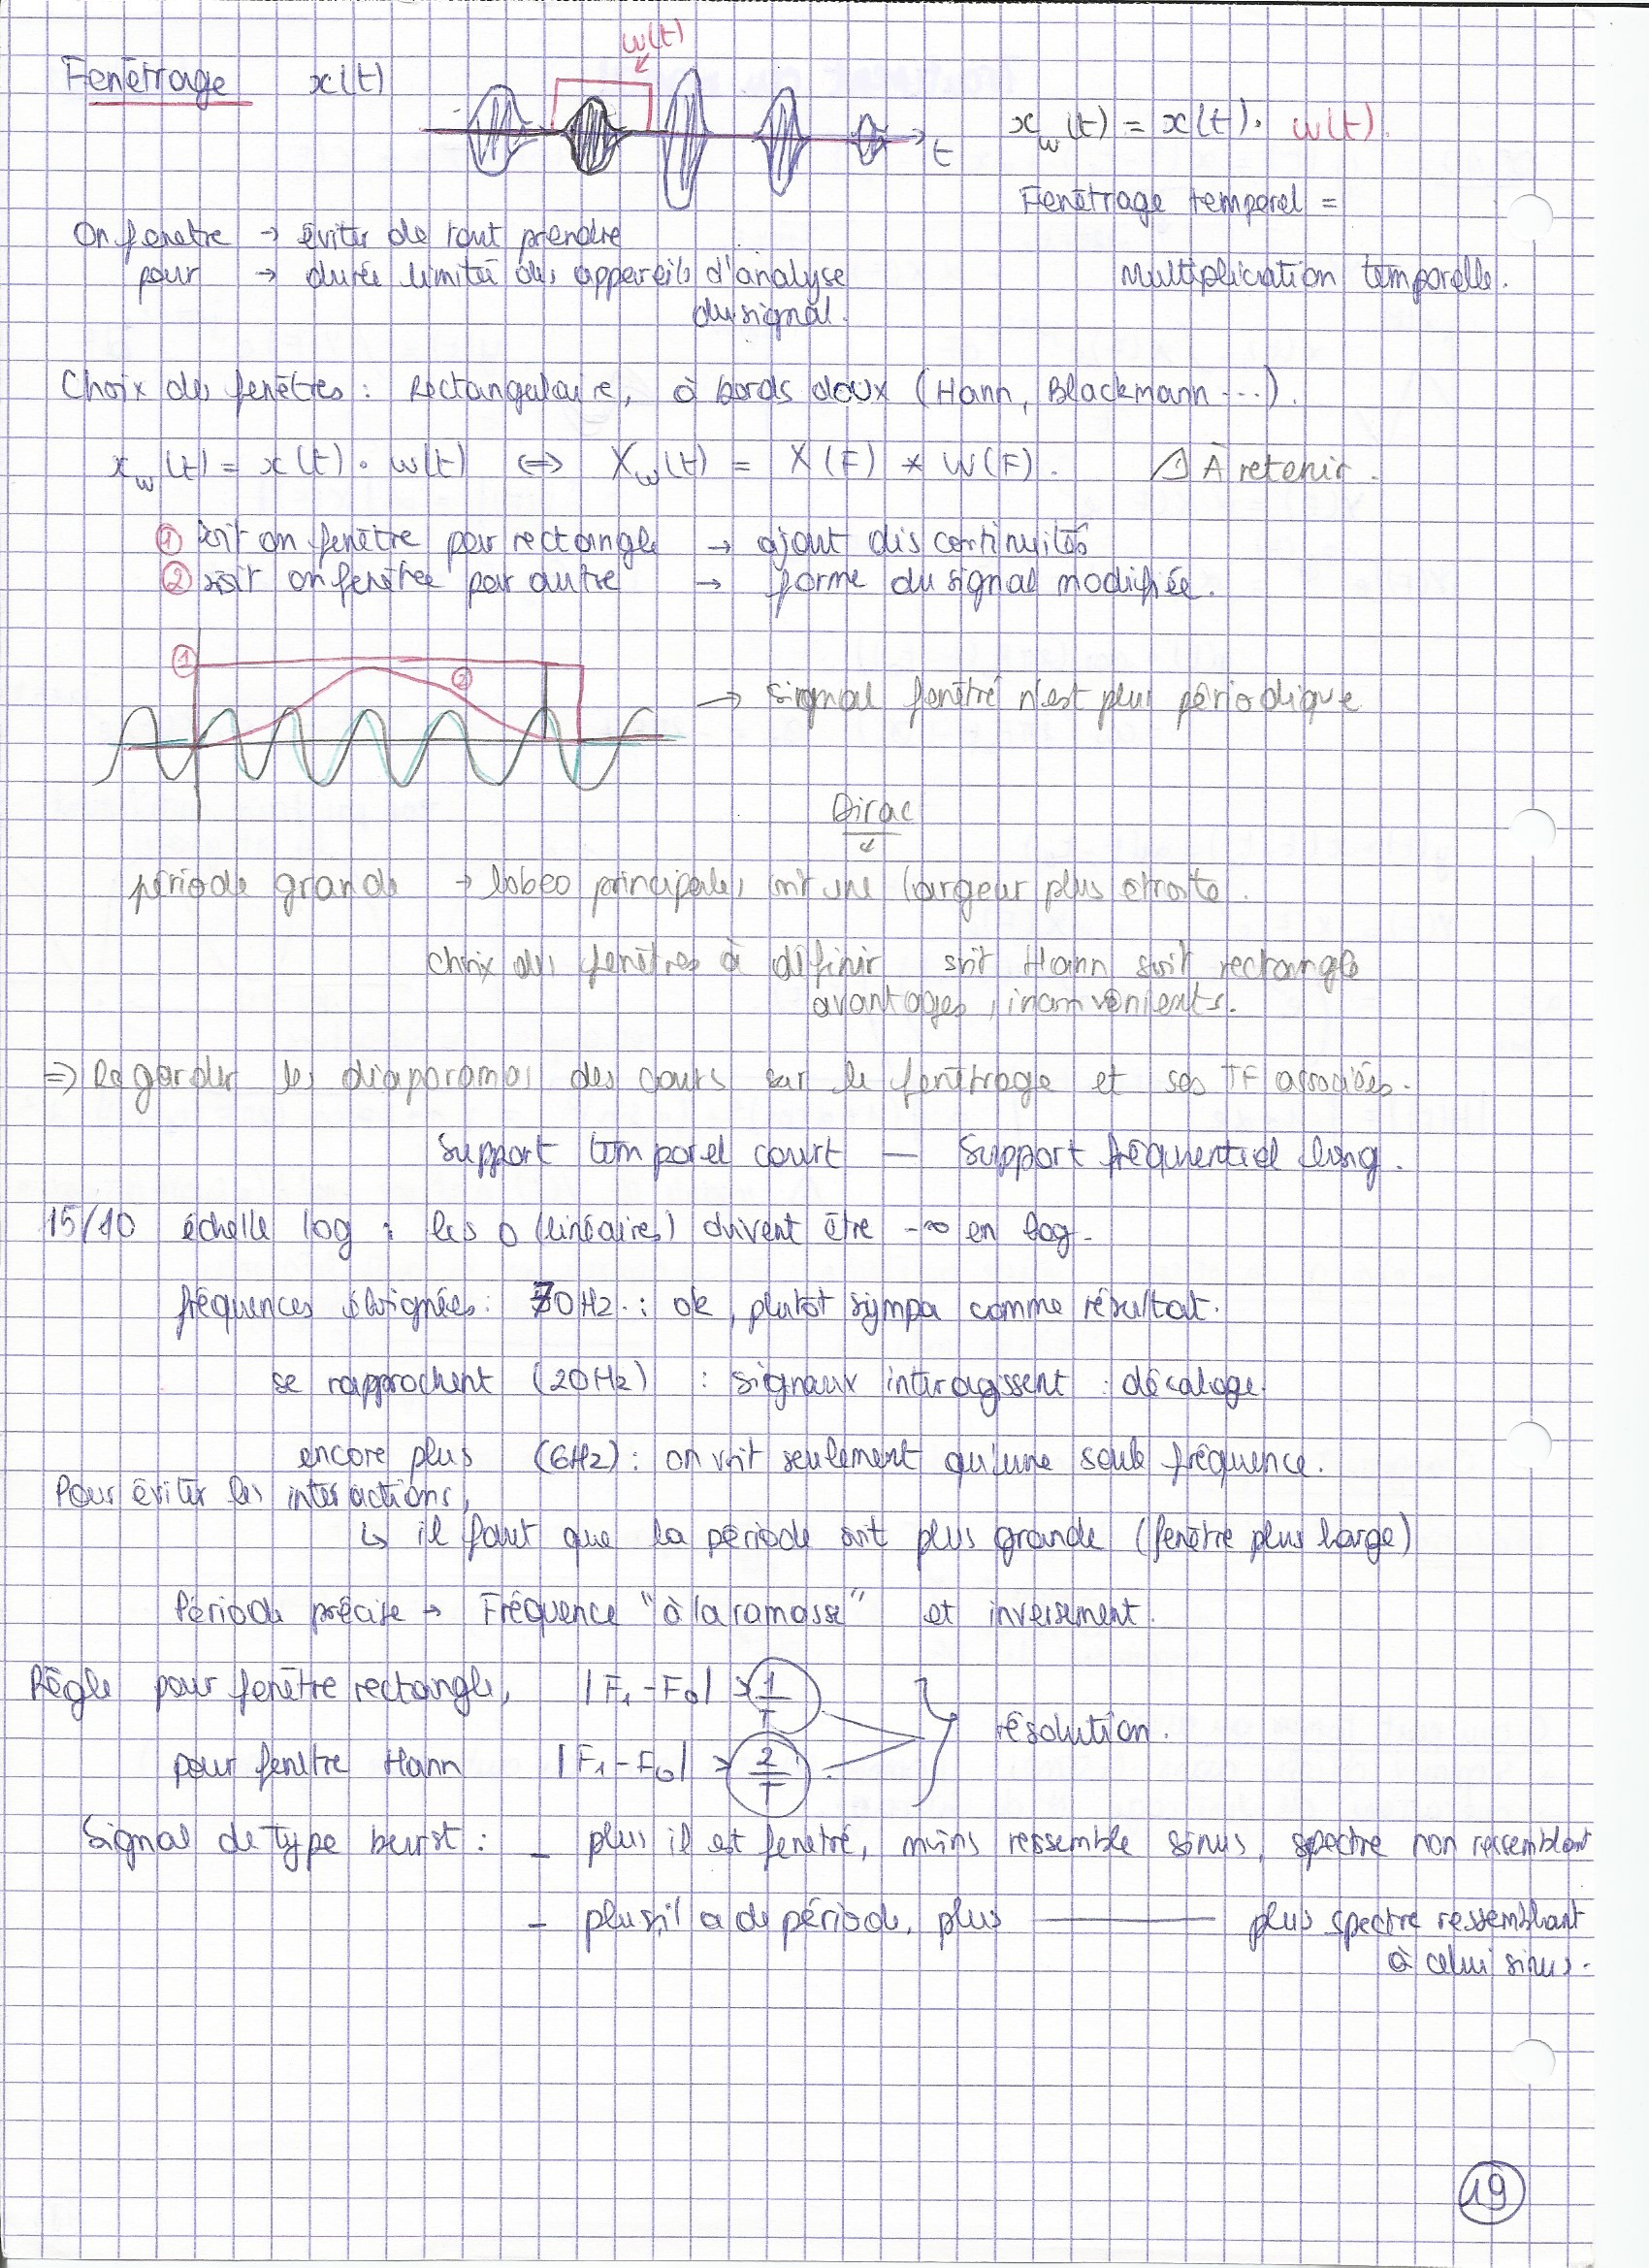 w(t)
Fenêtrage x(t)
t
x_w(t) = x(t). w(t).
Fenêtrage temporel =
On fenetre → éviter de tout prendre
pour → durée limitée des appareils d'analyse
Multiplication temporelle.
du signal.
Choix des fenêtres : Rectangulaire, à bords doux (Hann, Blackmann ...).
x_w(t) = x(t) . w(t) ⇔ X_w(t) = X(F) * W(F). ⚠ À retenir.
① soit on fenêtre par rectangle → ajout discontinuités
② soit on fenêtre par autre → forme du signal modifiée.
① ②
→ signal fenêtré n'est plus périodique
Dirac
période grande → lobes principales ont une largeur plus étroite.
choix des fenêtres à définir soit Hann soit rectangle
avantages, inconvénients.
⇒ Regarder les diaporamas des cours sur le fenêtrage et ses TF associées.
Support temporel court — Support fréquentiel long.
15/10 échelle log : les 0 (linéaires) doivent être -∞ en log.
fréquences éloignées : 70Hz. : ok, plutôt sympa comme résultat.
se rapprochent (20Hz) : signaux interagissent : décalage.
encore plus (6Hz) : on voit seulement qu'une seule fréquence.
Pour éviter les interactions,
↳ il faut que la période soit plus grande (fenêtre plus large)
Période précise → Fréquence "à la ramasse" et inversement.
Règle pour fenêtre rectangle, |F₁-F₀| > 1/T
résolution.
pour fenêtre Hann |F₁-F₀| > 2/T.
Signal de type burst : - plus il est fenetré, moins ressemble sinus, spectre non ressemblant
- plus il a de période, plus ——— plus spectre ressemblant
à celui sinus.
19